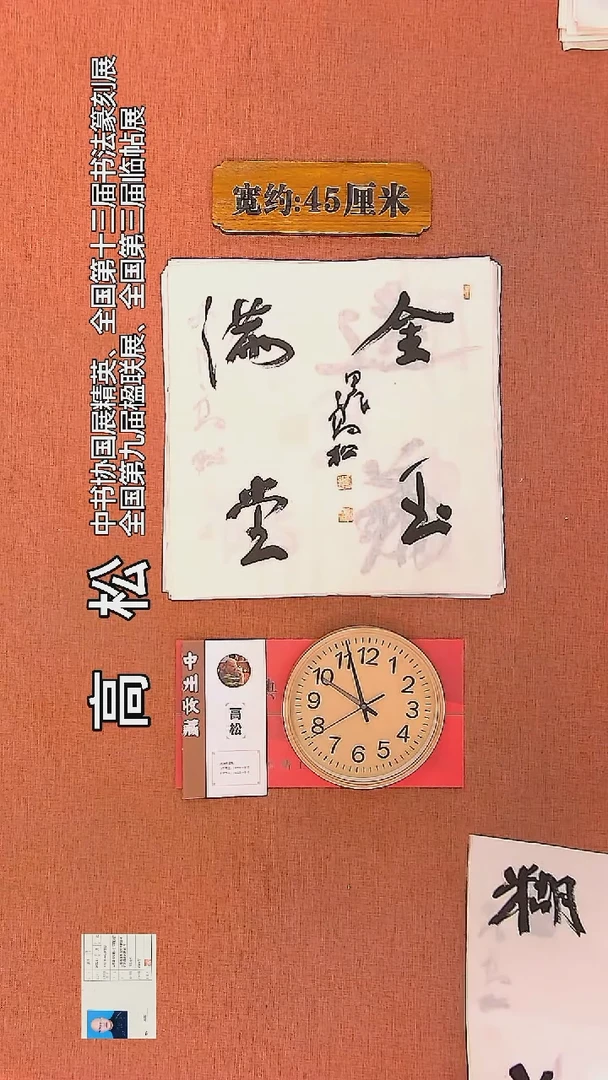 中书协国展精英、全国第十三届书法篆刻展
全国第九届楹联展、全国第三届临帖展
高 松
宽约:45厘米
金玉
满堂
高松
高松
12
1
2
3
4
5
6
7
8
9
10
11
糊